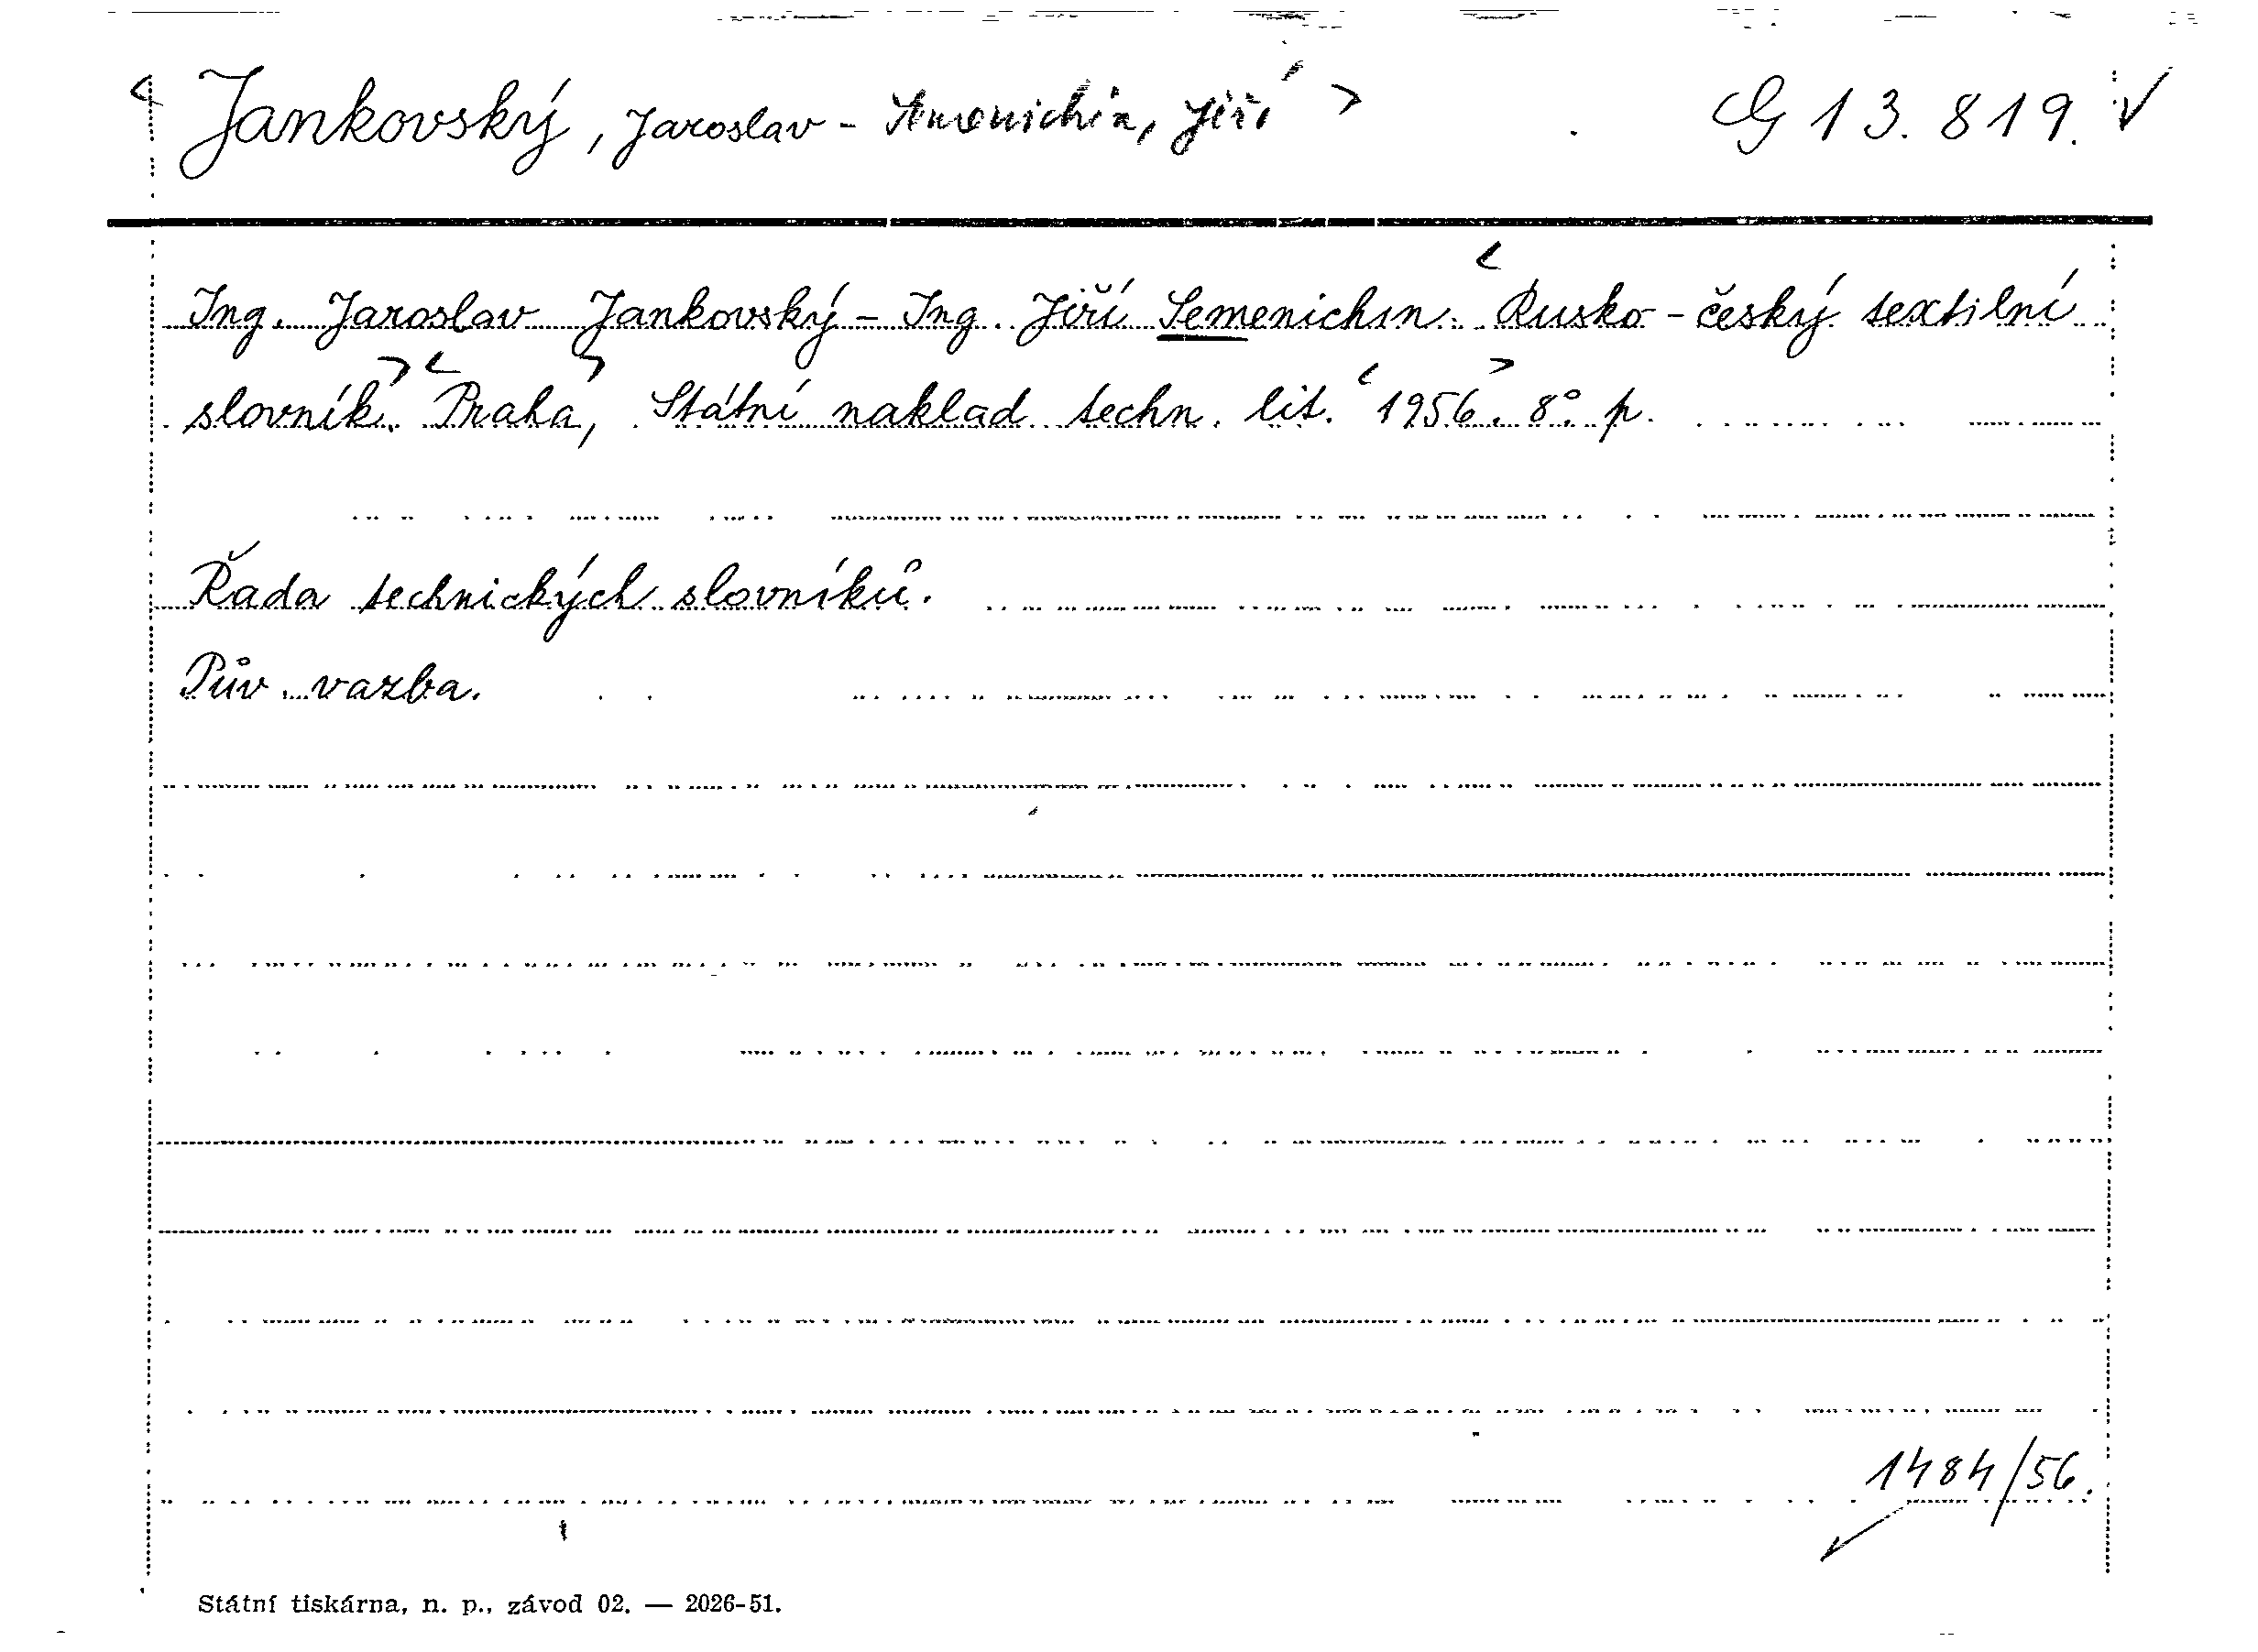 < Jankovský, Jaroslav - Semenichin, Jiří > G 13.819. √
Ing. Jaroslav Jankovský - Ing. Jiří Semenichin. < Rusko-český textilní
slovník. > < Praha, > Státní naklad. techn. lit. < 1956. > 8°. p.
Řada technických slovníků.
Pův. vazba.
1484/56.
Státní tiskárna, n. p., závod 02. — 2026-51.